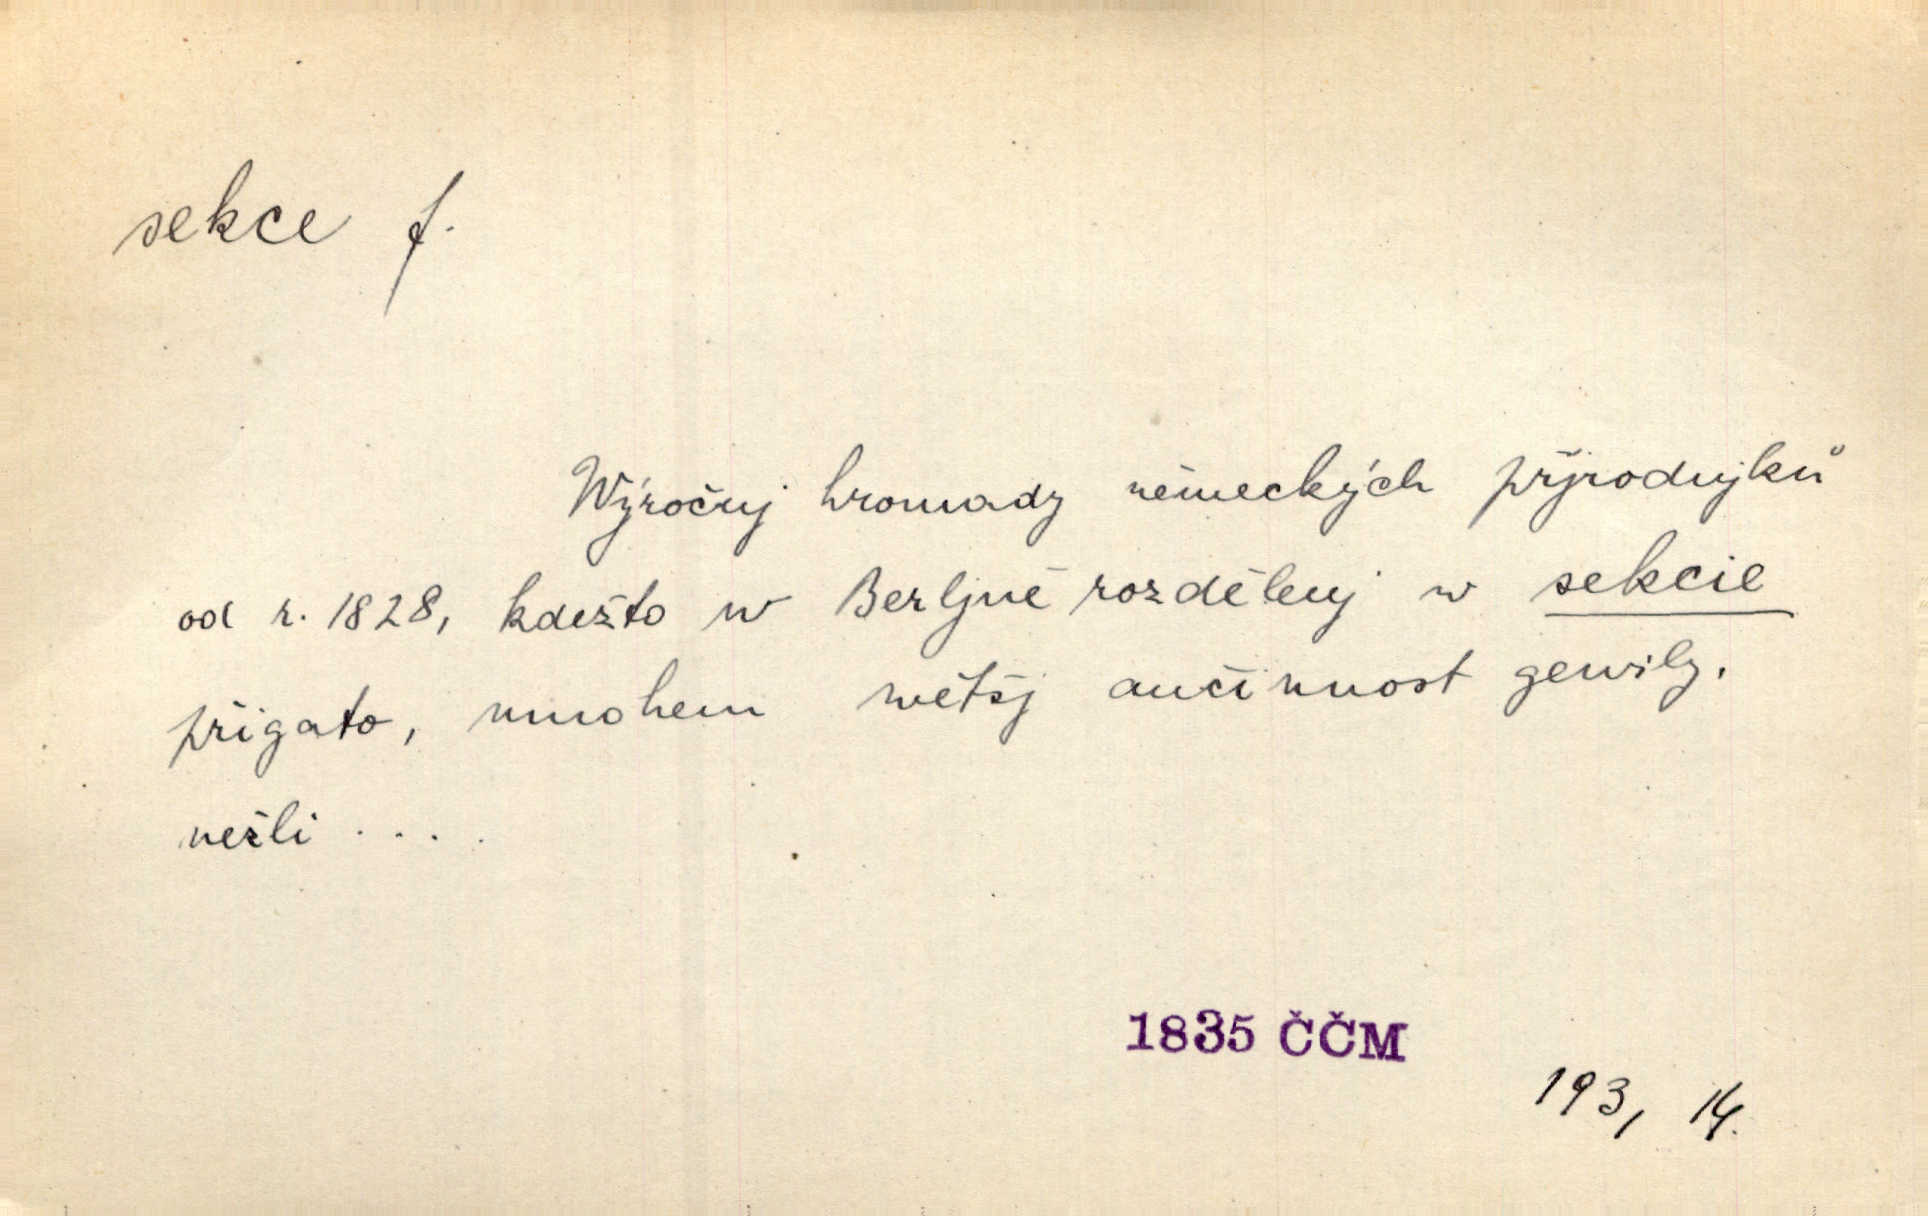 sekce f.
Wýročnj hromady německých přjrodnjků
od r. 1828, kdežto w Berljně rozdělenj w sekcie
přigato, mnohem wětšj aučinnost gewily.
nežli ....
1835 ČČM
193, 14.